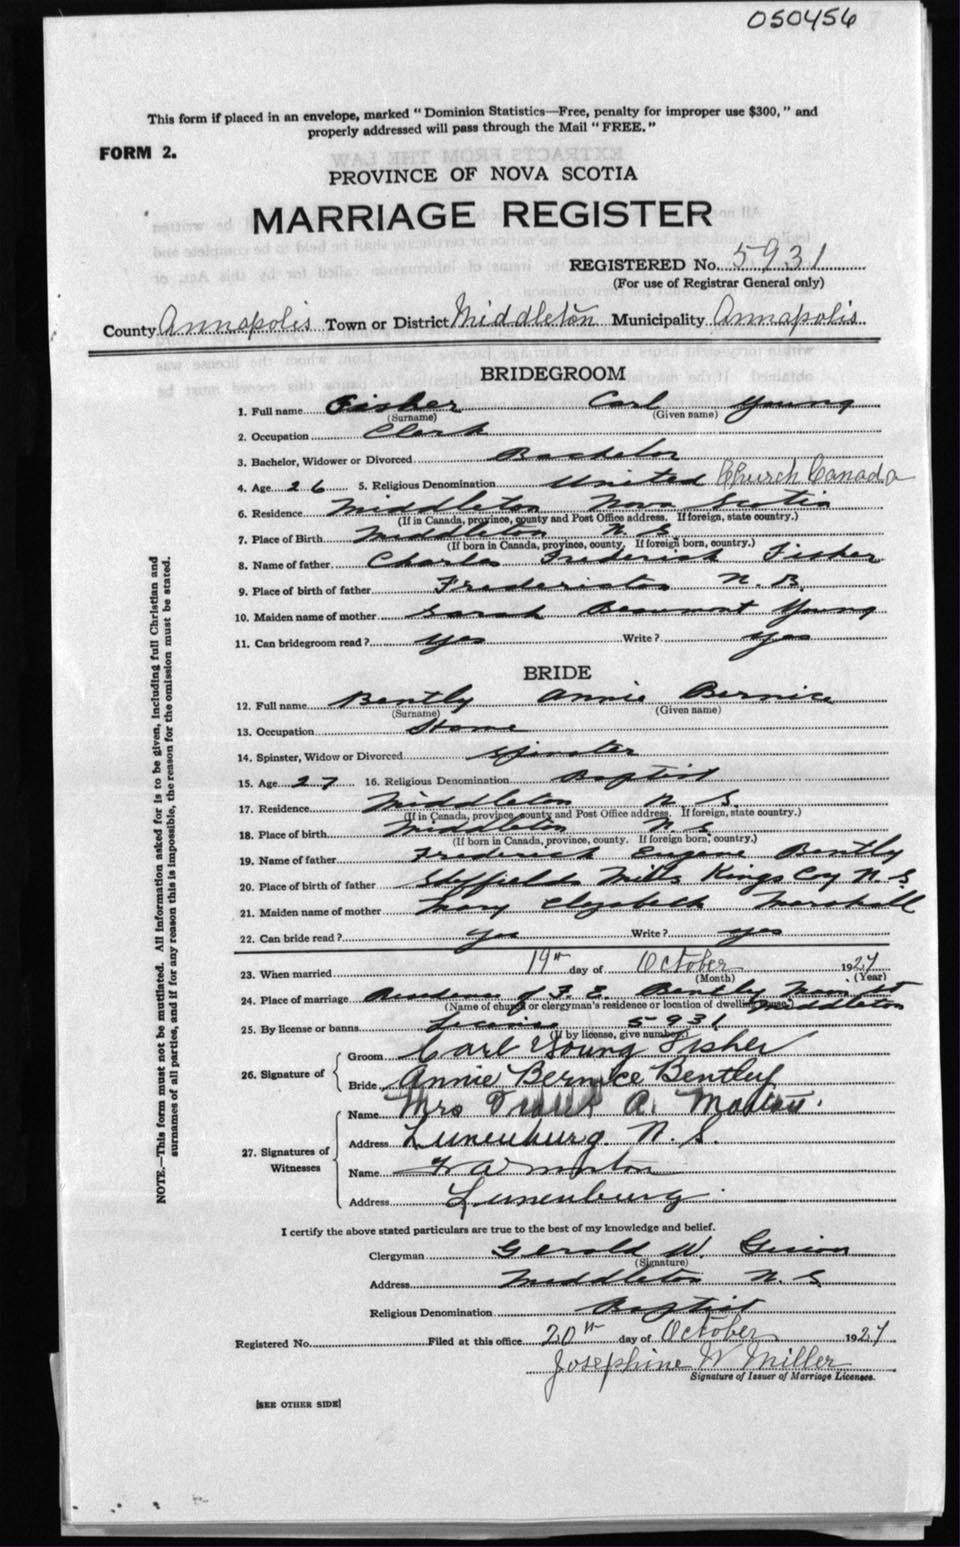 050456
This form if placed in an envelope, marked "Dominion Statistics—Free, penalty for improper use $300," and
properly addressed will pass through the Mail "FREE."
FORM 2.
PROVINCE OF NOVA SCOTIA
MARRIAGE REGISTER
REGISTERED No. 5931
(For use of Registrar General only)
County Annapolis Town or District Middleton Municipality Annapolis
BRIDEGROOM
1. Full name Fisher Carl Young
(Surname) (Given name)
2. Occupation Clerk
3. Bachelor, Widower or Divorced Bachelor
4. Age 26 5. Religious Denomination United Church Canada
6. Residence Middleton Nova Scotia
(If in Canada, province, county and Post Office address. If foreign, state country.)
7. Place of Birth Middleton N.S.
(If born in Canada, province, county. If foreign born, country.)
8. Name of father Charles Frederick Fisher
9. Place of birth of father Fredericton N.B.
10. Maiden name of mother Sarah Beaumont Young
11. Can bridegroom read? yes Write? yes
BRIDE
12. Full name Bently Annie Bernice
(Surname) (Given name)
13. Occupation Home
14. Spinster, Widow or Divorced Spinster
15. Age 27 16. Religious Denomination Baptist
17. Residence Middleton N.S.
(If in Canada, province, county and Post Office address. If foreign, state country.)
18. Place of birth Middleton N.S.
(If born in Canada, province, county. If foreign born, country.)
19. Name of father Frederick Eugene Bently
20. Place of birth of father Sheffields Mills Kings Coy N.S.
21. Maiden name of mother Mary Elizabeth Marshall
22. Can bride read? yes Write? yes
23. When married 19th day of October 1927
(Month) (Year)
24. Place of marriage Residence of F. E. Bently Main St Middleton
(Name of church or clergyman's residence or location of dwelling house.)
25. By license or banns License 5931
(If by license, give number)
26. Signature of Groom Carl Young Fisher
Bride Annie Bernice Bentley
27. Signatures of Witnesses
Name Mrs Frank A. Morton.
Address Lunenburg N.S.
Name F A Morton
Address Lunenburg.
I certify the above stated particulars are true to the best of my knowledge and belief.
Clergyman Gerald W.
(Signature)
Address Middleton N.S.
Religious Denomination Baptist
Registered No. Filed at this office 20th day of October 1927
Josephine W Miller
Signature of Issuer of Marriage Licenses.
[SEE OTHER SIDE]
NOTE.—This form must not be mutilated. All information asked for is to be given, including full Christian and
surnames of all parties, and if for any reason this is impossible, the reason for the omission must be stated.